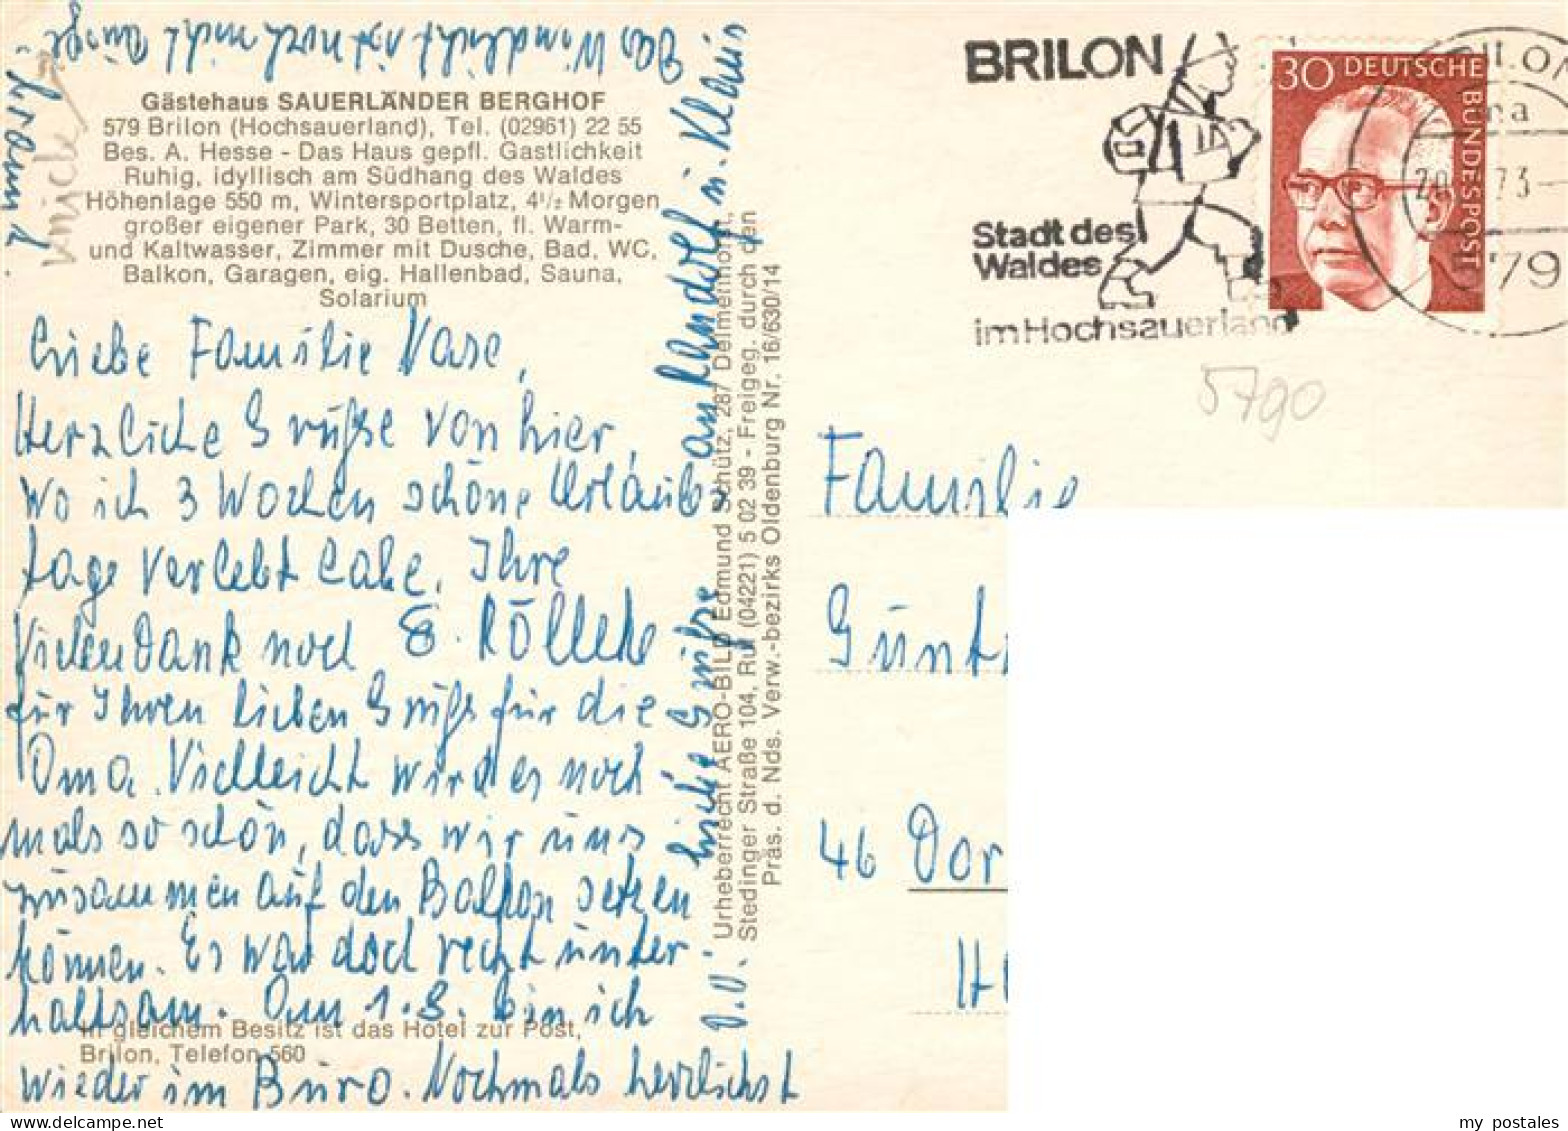 Das Windlicht ist noch nicht
Gästehaus SAUERLÄNDER BERGHOF
579 Brilon (Hochsauerland), Tel. (02961) 22 55
Bes. A. Hesse - Das Haus gepfl. Gastlichkeit
Ruhig, idyllisch am Südhang des Waldes
Höhenlage 550 m, Wintersportplatz, 4½ Morgen
großer eigener Park, 30 Betten, fl. Warm-
und Kaltwasser, Zimmer mit Dusche, Bad, WC,
Balkon, Garagen, eig. Hallenbad, Sauna,
Solarium
Liebe Familie Vase,
Herzliche Grüße von hier,
wo ich 3 Wochen schöne Urlaubs
tage verlebt habe. Ihre
Vielen Dank noch E. Rölleke
für Ihren lieben Gruß für die
Oma. Vielleicht wird es noch
mals so schön, dass wir uns
zusammen auf den Balkon setzen
können. Es war doch recht unter-
haltsam. Am 1.8. bin ich
wieder im Büro. Nochmals herzlichst
In gleichem Besitz ist das Hotel zur Post,
Brilon, Telefon 560
liebe Grüße an Randolf u. Klaus
Urheberrecht AERO-BILD Edmund Schütz, 287 Delmenhorst,
Stedinger Straße 104, Ruf (04221) 5 02 39 - Freigeg. durch den
Präs. d. Nds. Verw.-bezirks Oldenburg Nr. 16/630/14
BRILON
Stadt des
Waldes
im Hochsauerland
30 DEUTSCHE
BUNDESPOST
BRILON
73
579
5790
Familie
Günt
46 Dor
my postales